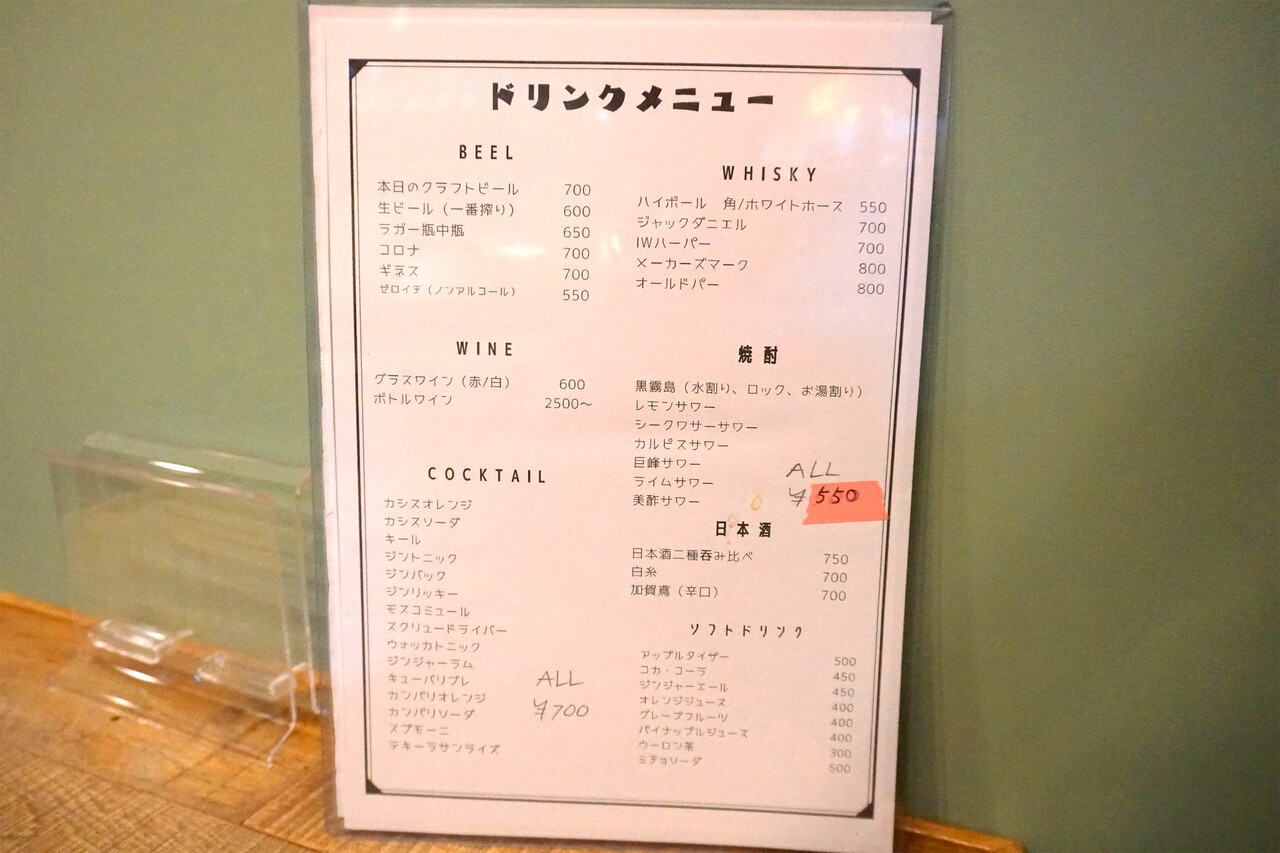 ドリンクメニュー
BEEL
本日のクラフトビール 700
生ビール（一番搾り） 600
ラガー瓶中瓶 650
コロナ 700
ギネス 700
ゼロイチ（ノンアルコール） 550
WINE
グラスワイン（赤/白） 600
ボトルワイン 2500〜
COCKTAIL
カシスオレンジ
カシスソーダ
キール
ジントニック
ジンバック
ジンリッキー
モスコミュール
スクリュードライバー
ウォッカトニック
ジンジャーラム
キューバリブレ
カンパリオレンジ
カンパリソーダ
スプモーニ
テキーラサンライズ
ALL
¥700
WHISKY
ハイボール 角/ホワイトホース 550
ジャックダニエル 700
IWハーパー 700
メーカーズマーク 800
オールドパー 800
焼酎
黒霧島（水割り、ロック、お湯割り）
レモンサワー
シークワサーサワー
カルピスサワー
巨峰サワー
ライムサワー
美酢サワー
ALL
¥550
日本酒
日本酒二種呑み比べ 750
白糸 700
加賀鳶（辛口） 700
ソフトドリンク
アップルタイザー 500
コカ・コーラ 450
ジンジャーエール 450
オレンジジュース 400
グレープフルーツ 400
パイナップルジュース 400
ウーロン茶 300
ミチョソーダ 500